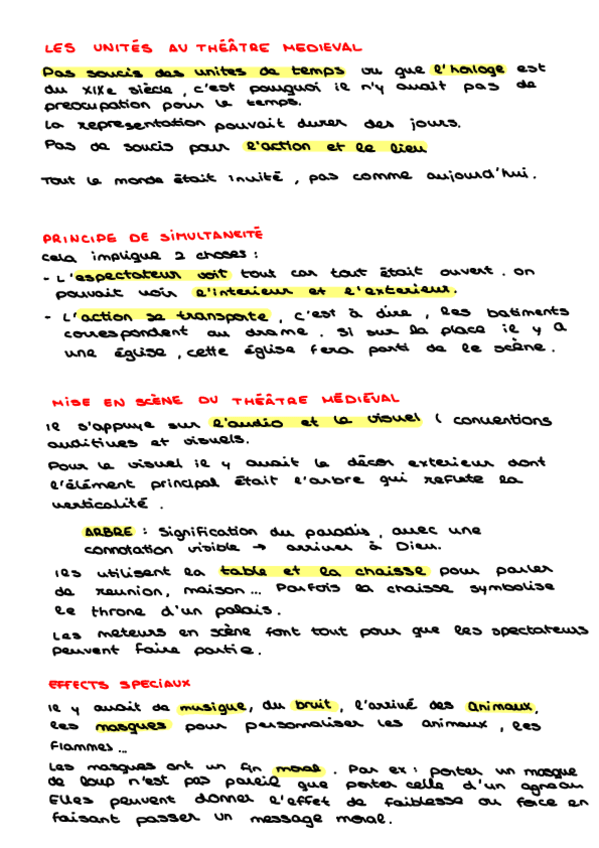 LES UNITÉS AU THÉÂTRE MEDIEVAL
Pas soucis des unites de temps vu que l'horloge est
du XIXe siècle, c'est pourquoi il n'y avait pas de
preocupation pour le temps.
La representation pouvait durer des jours.
Pas de soucis pour l'action et le lieu
Tout le monde était invité, pas comme aujourd'hui.
PRINCIPE DE SIMULTANEITÉ
Cela implique 2 choses :
- L'espectateur voit tout car tout était ouvert. On
pouvait voir l'interieur et l'exterieur.
- L'action se transporte, c'est à dire, les batiments
correspondent au drame. Si sur la place il y a
une église, cette église fera parti de le scène.
MISE EN SCÈNE DU THÉÂTRE MÉDIÉVAL
Il s'appuye sur l'audio et le visuel ( conventions
auditives et visuels.
Pour le visuel il y avait le décor exterieur dont
l'élément principal était l'arbre qui reflete la
verticalité.
ARBRE : Signification du paradis, avec une
connotation visible → arriver à Dieu.
Ils utilisent la table et la chaisse pour parler
de reunion, maison... Parfois la chaisse symbolise
le throne d'un palais.
Les meteurs en scène font tout pour que les spectateurs
peuvent faire partie.
EFFECTS SPECIAUX
Il y avait de musique, du bruit, l'arrivé des animaux,
les masques pour personnaliser les animaux, les
flammes...
Les masques ont un fin moral. Par ex : porter un masque
de loup n'est pas pareil que porter celle d'un agneau
Elles peuvent donner l'effet de faiblesse ou force en
faisant passer un message moral.